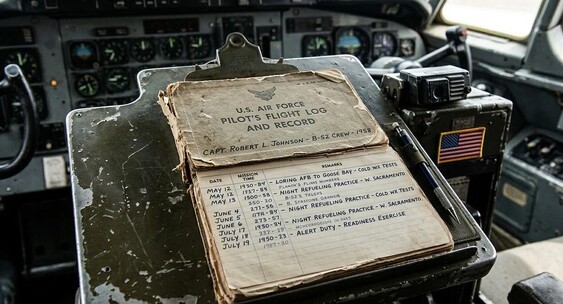 U.S. AIR FORCE
PILOT'S FLIGHT LOG
AND RECORD
CAPT. ROBERT L. JOHNSON - B-52 CREW - 1958
DATE MISSION TIME REMARKS
MAY 12 LORING AFB TO GOOSE BAY - COLD WX TESTS
MAY 12
MAY 13 NIGHT REFUELING PRACTICE - W. SACRAMENTO
JUNE 4
JUNE 5 NIGHT REFUELING PRACTICE - COLD WX TESTS
JUNE 6
JULY 17 NIGHT REFUELING PRACTICE - W. SACRAMENTO
JULY 18
JULY 19 1950-23 - ALERT DUTY - READINESS EXERCISE